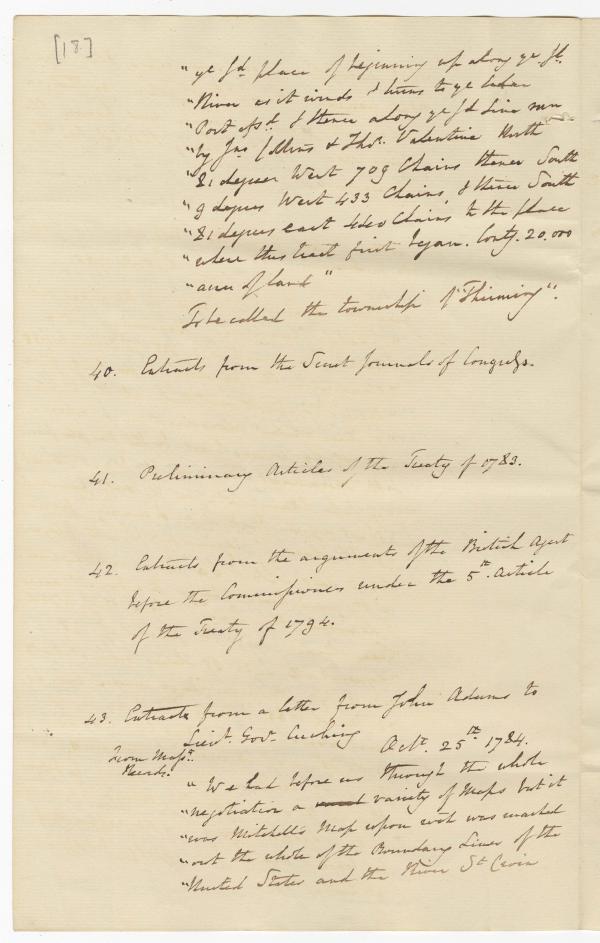 [18]
"ye sd. place of beginning up along ye sd.
"River as it winds & turns to ye
"Port afsd. & thence along ye sd line run
"by Jno. Collins & Thos. Valentine North
"81 degrees West 709 Chains thence South
"9 degrees West 433 Chains, & thence South
"81 degrees east 440 Chains to the place
"where this tract first began. Contg. 20.000
"acres of land"
To be called the township of "Thirming".
40. Extracts from the Secret Journals of Congress.
41. Preliminary Articles of the Treaty of 1783.
42. Extracts from the arguments of the British Agent
before the Commissioners under the 5th. Article
of the Treaty of 1794.
43. Extracts from a letter from John Adams to
Lieut. Gov. Cushing
Octr. 25th. 1784.
From Masst.
Records.
"We had before us through the whole
"negotiation a variety of Maps but it
"was Mitchell's Map upon wch was marked
"out the whole of the Boundary Lines of the
"United States and the River St Croix